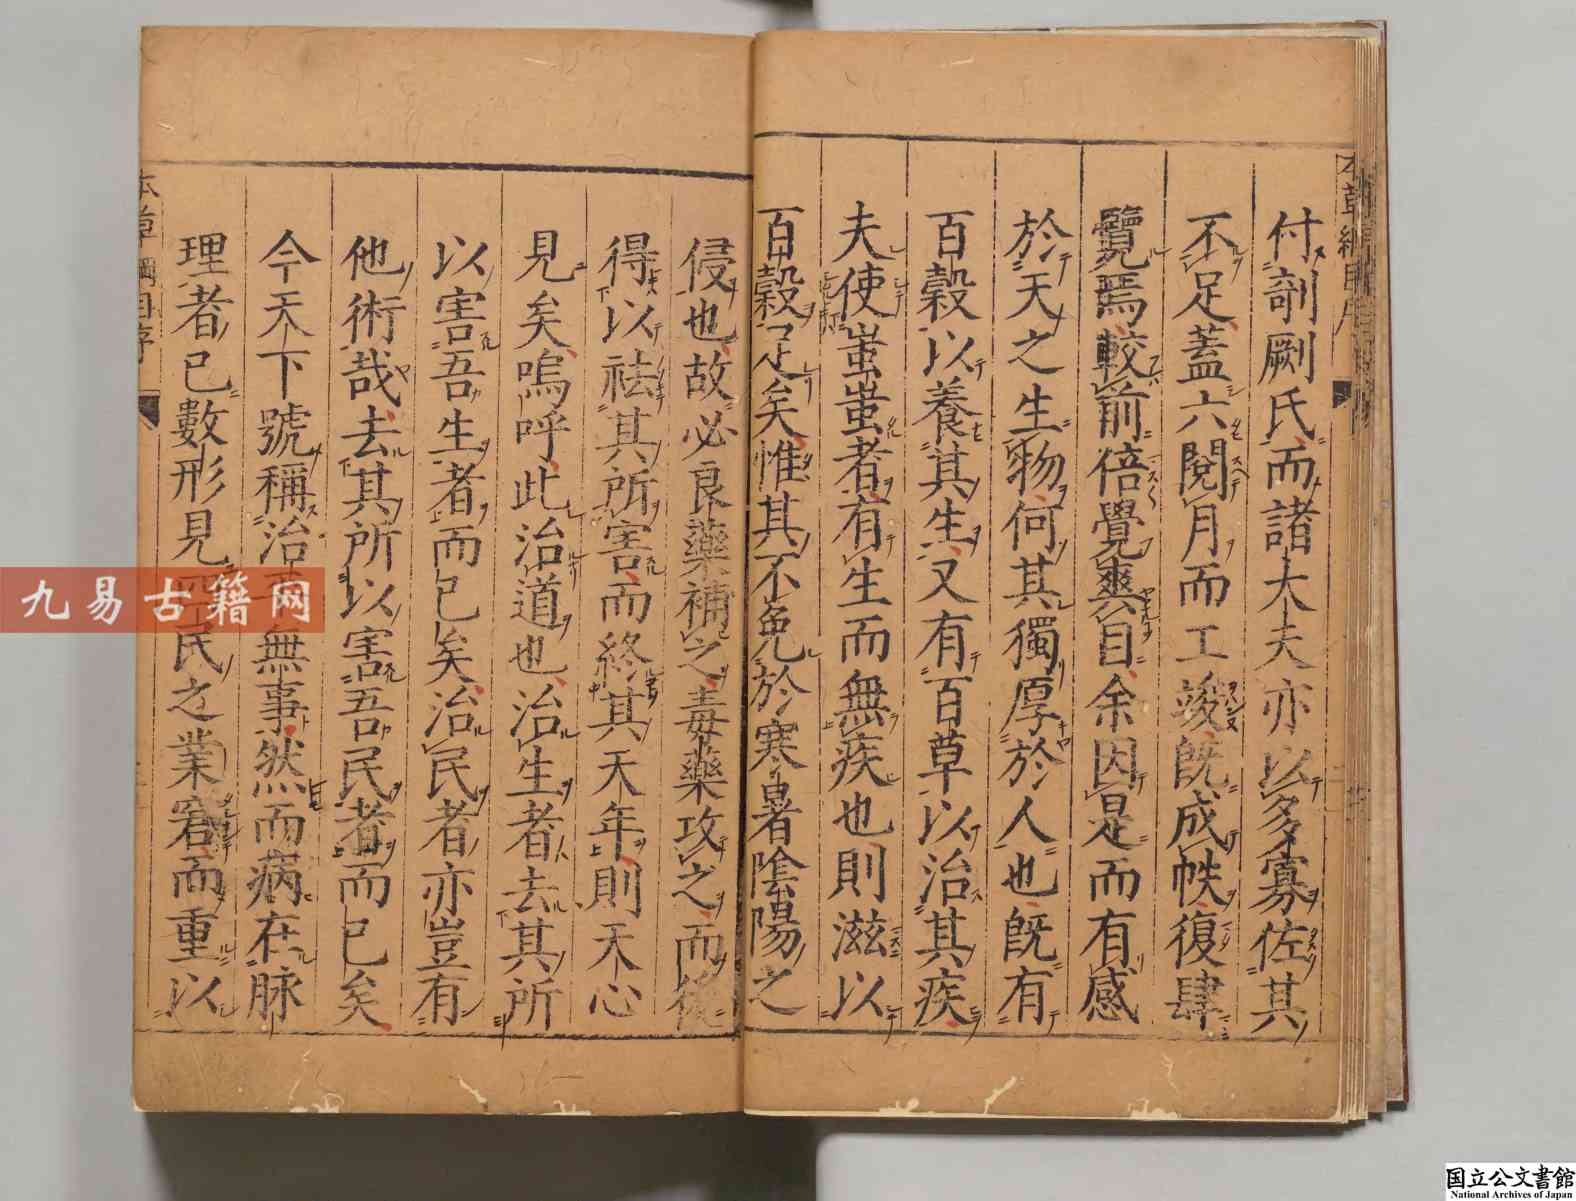 付剞劂氏而諸大夫亦以多寡佐其
不足蓋六閱月而工竣既成帙復肆
覽焉較前倍覺爽目余因是而有感
於天之生物何其獨厚於人也既有
百穀以養其生又有百草以治其疾
夫使蚩蚩者有生而無疾也則滋以
百穀足矣惟其不免於寒暑陰陽之
侵也故必良藥補之毒藥攻之而後
得以祛其所害而終其天年則天心
見矣嗚呼此治道也治生者去其所
以害吾生者而已矣治民者亦豈有
他術哉去其所以害吾民者而已矣
今天下號稱治無事然而病在脉
理者已數形見民之業窘而重以
本草綱目序
九易古籍网
国立公文書館
National Archives of Japan